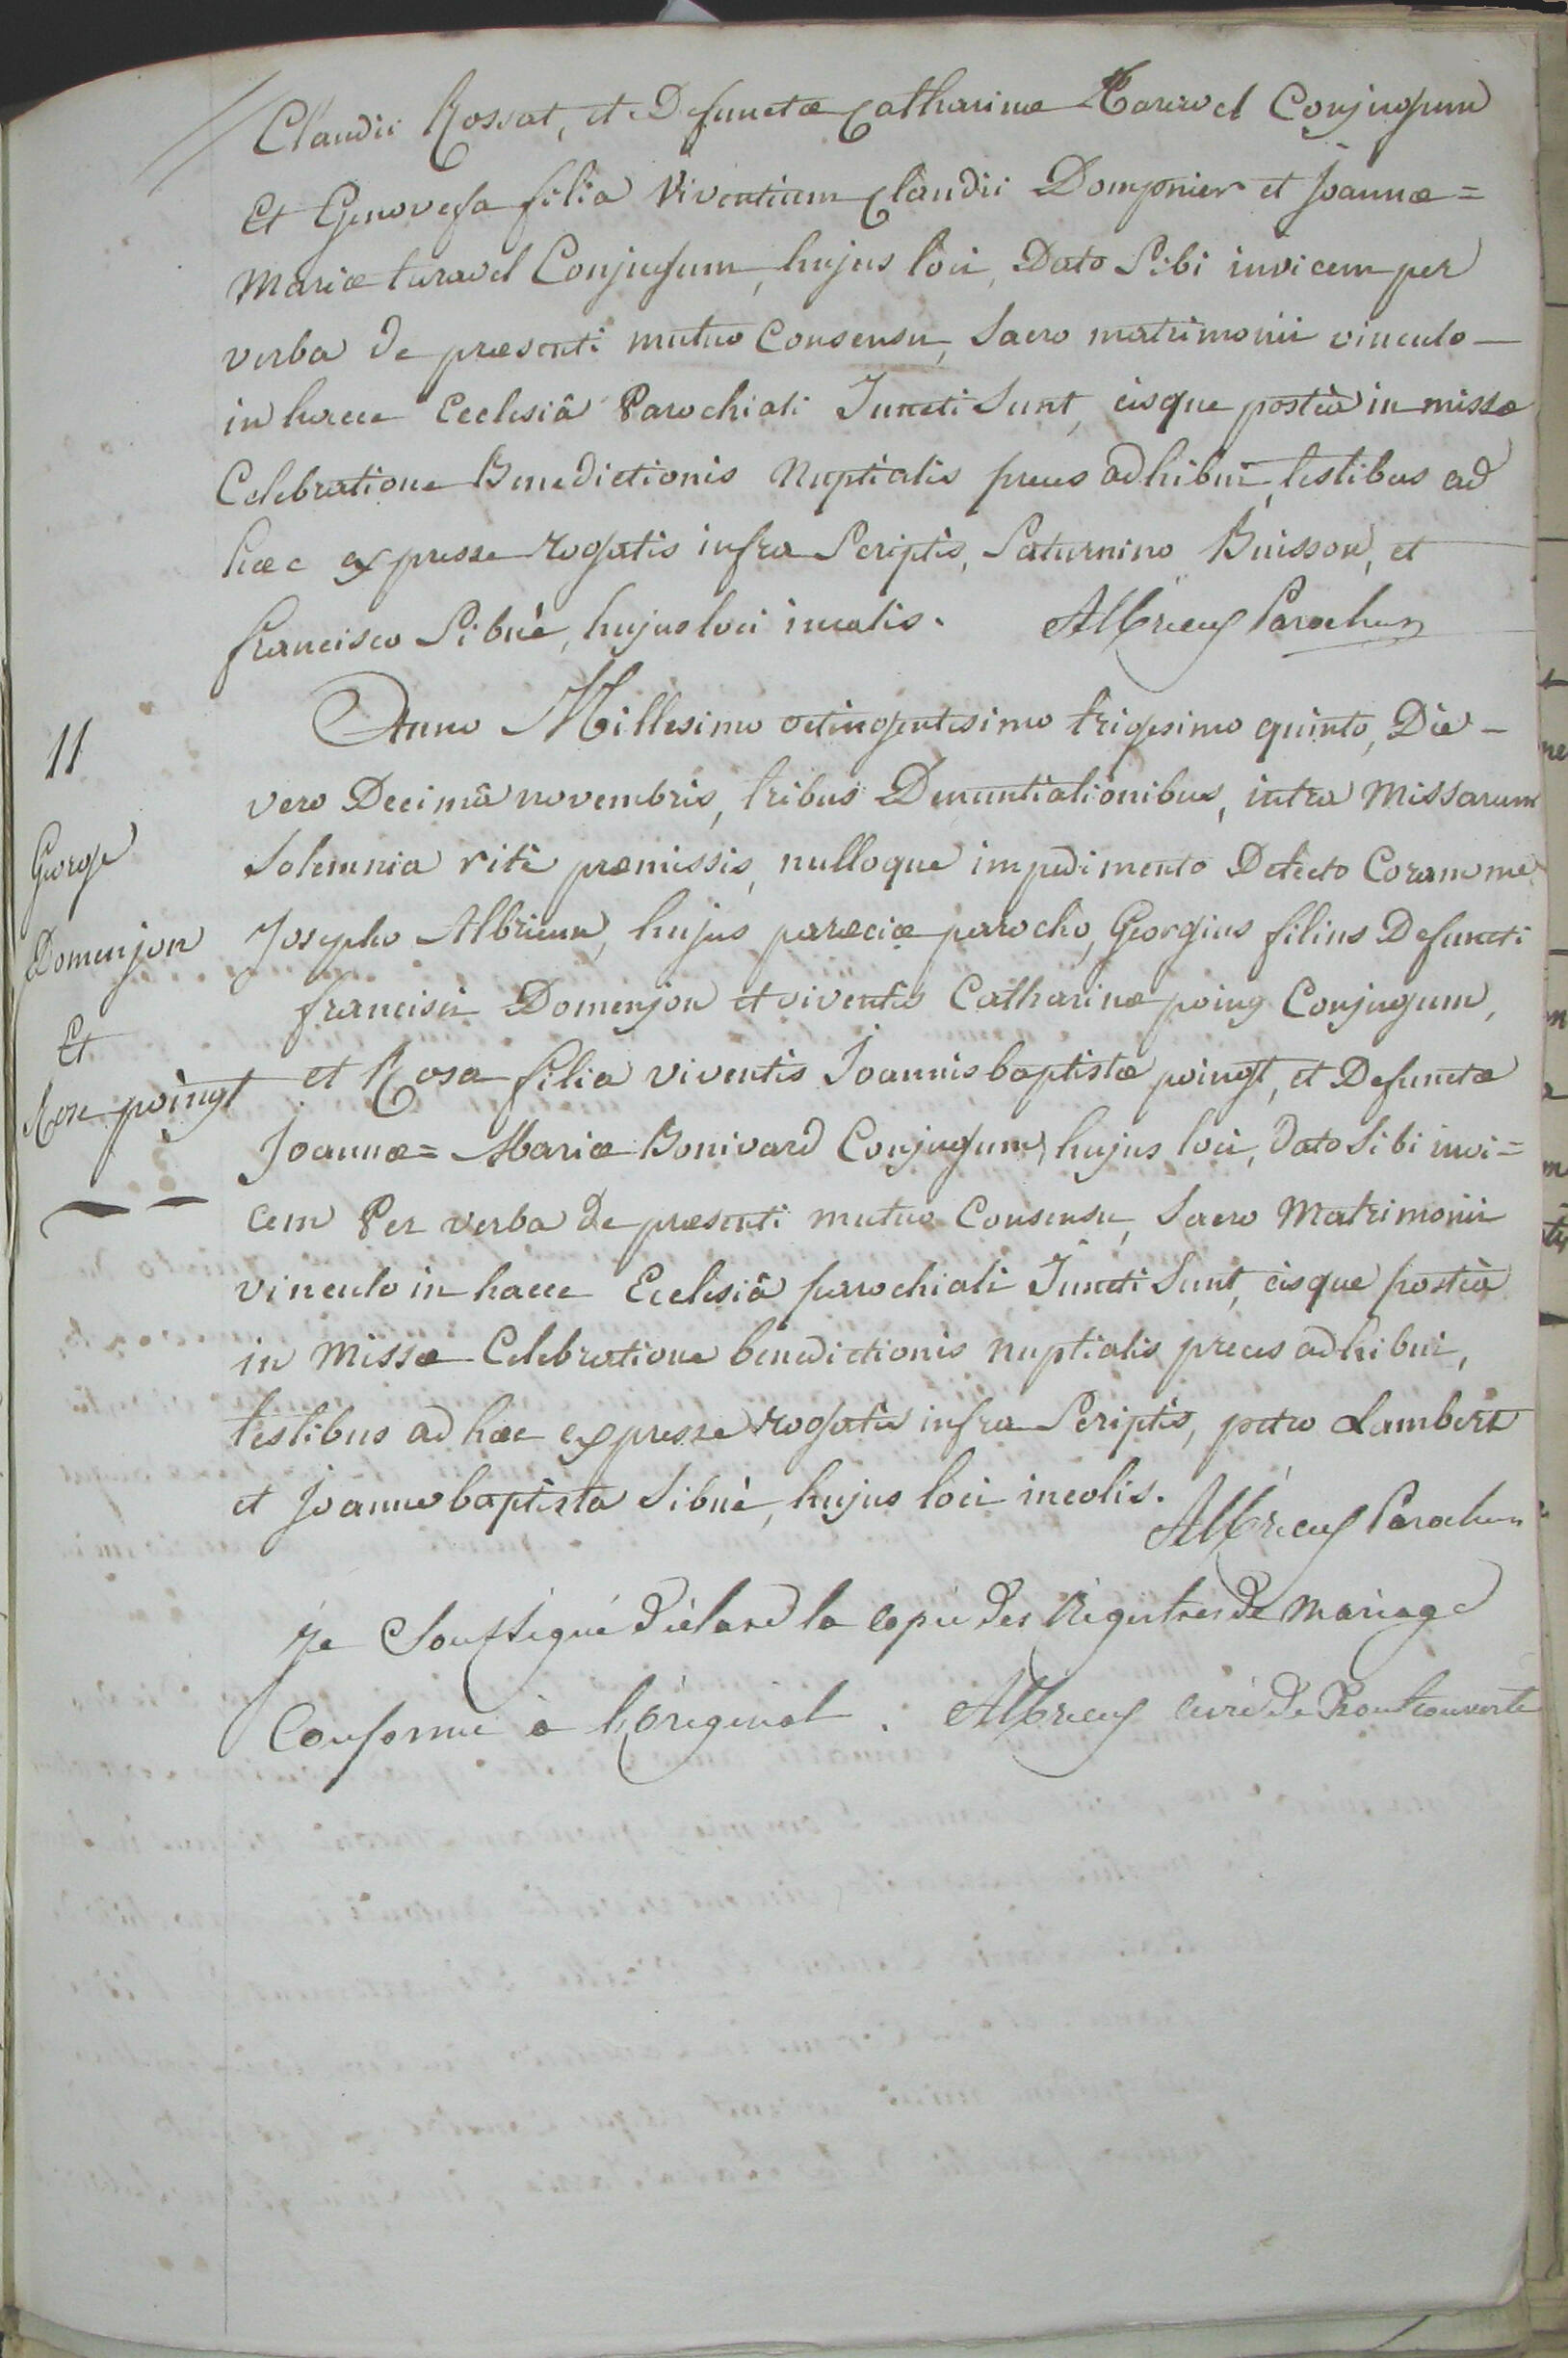 Claudii Rossat, et Defunctæ Catharinæ Taravel Conjugum
Et Genovefa filia Viventium Claudii Dompnier et Joannæ=
Mariæ taravel Conjugum, hujus loci, Dato Sibi invicem per
verba de præsenti mutuo Consensu, Sacro matrimonii vinculo
in hacce Ecclesiâ Parochiali Juncti Sunt, eisque posteà in missæ
Celebratione Benedictionis Nuptialis preces adhibui, testibus ad
hæc expresse rogatis infra Scriptis, Saturnino Buisson, et
francisco Sibué, hujus loci incolis. Albrieux Parochus
11
George
Domenjon
Et
Rose poingt
Anno Millesimo octingentesimo trigesimo quinto, Die
vero Decimâ novembris, tribus Denuntiationibus, intra Missarum
Solemnia ritè præmissis, nulloque impedimento Detecto Coram me
Josepho Albrieux, hujus parœciæ parocho, Georgius filius Defuncti
francisci Domenjon et viventis Catharinæ poing Conjugum,
et Rosa filia viventis Joannis baptistæ poingt, et Defunctæ
Joannæ= Mariæ Bonivard Conjugum, hujus loci, dato Sibi invi=
cem Per verba de præsenti mutuo Consensu, Sacro Matrimonii
vinculo in hacce Ecclesiâ parochiali Juncti Sunt, eisque posteà
in Missæ Celebratione benedictionis nuptialis preces adhibui,
testibus ad hæc expresse rogatis infra Scriptis, petro Lambert
et Joanne baptista Sibué, hujus loci incolis.
Albrieux Parochus
Je Soussigné déclare la copie des Régistres de Mariage
Conforme à l'original. Albrieux curé de Montcouverte